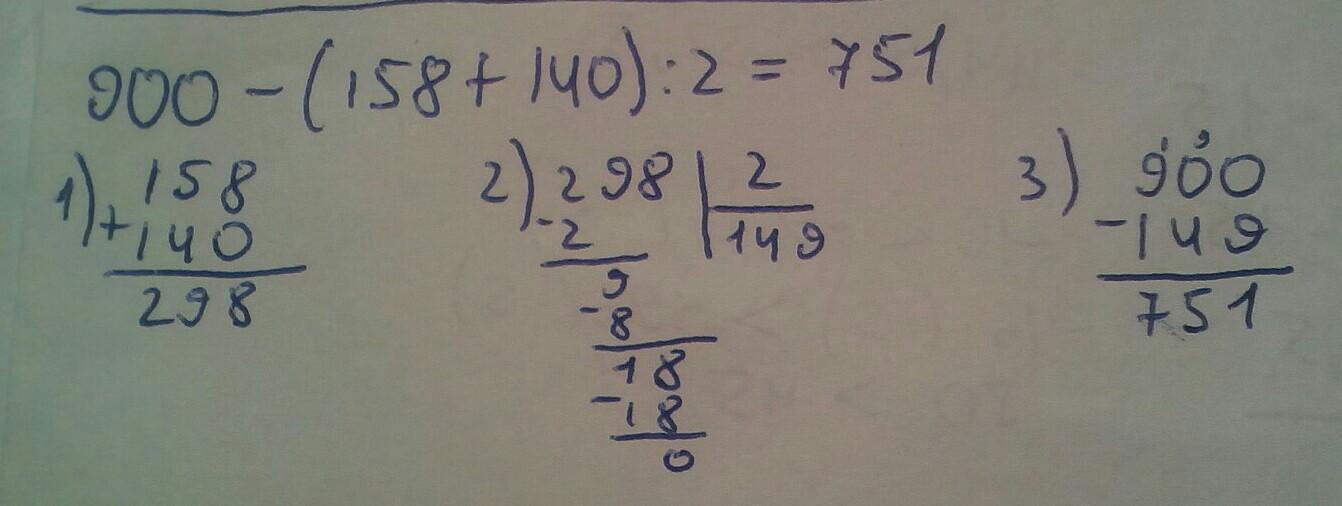 900 - (158 + 140) : 2 = 751
1) 158
+ 140
298
2) 298 | 2
- 2 | 149
9
- 8
18
- 18
0
3) 900
- 149
751